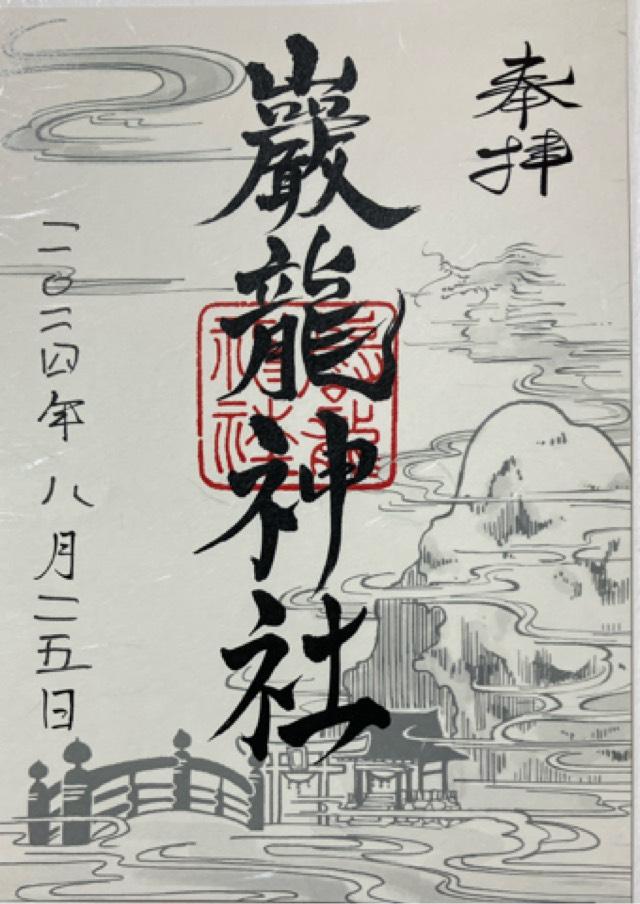 奉拝
巖龍神社
二〇二四年 八月二五日